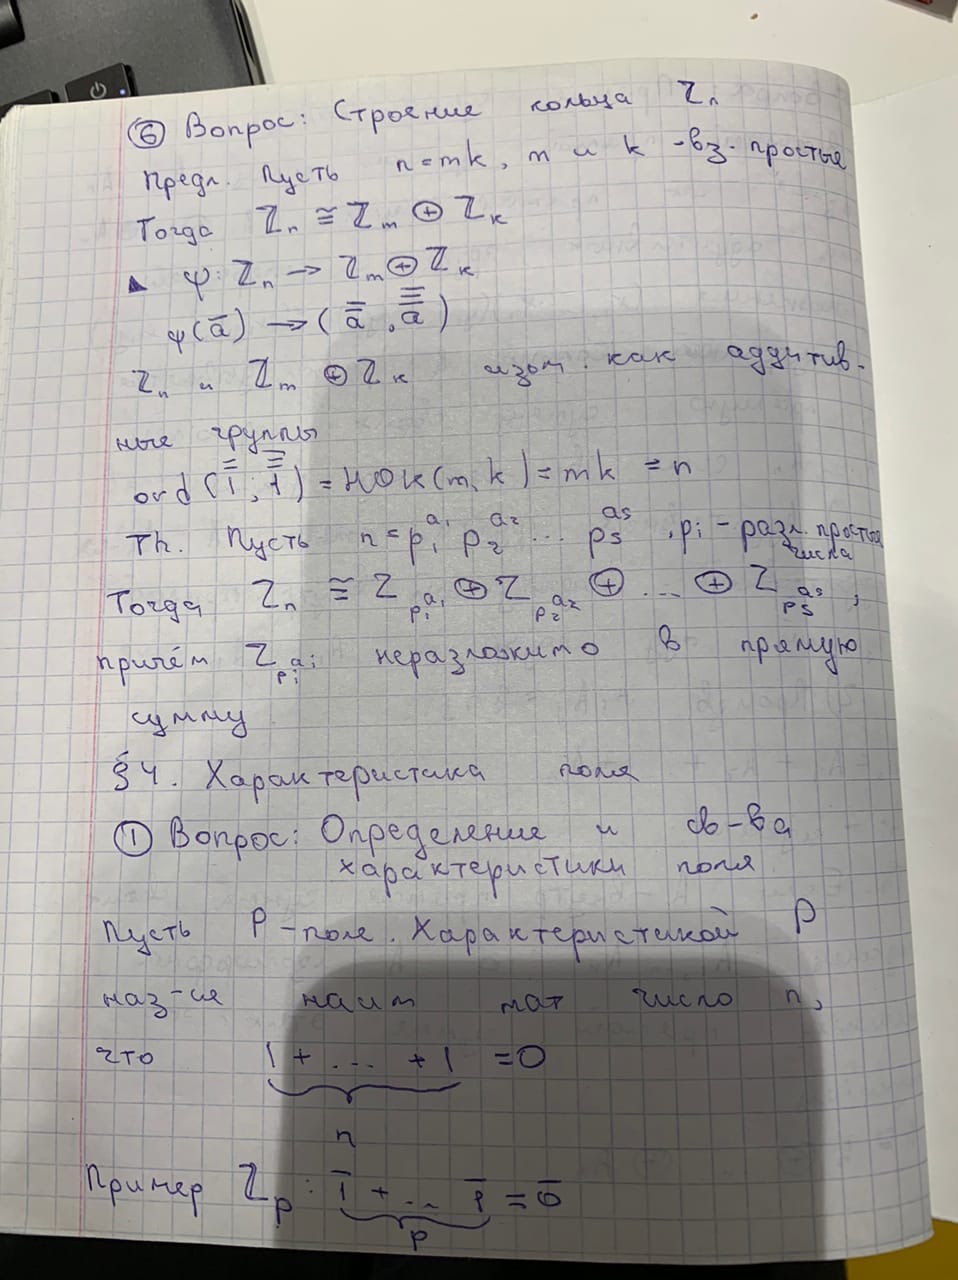 ⑥ Вопрос: Строение кольца ℤₙ
Предл. Пусть n=mk, m и k -вз. простые
Тогда ℤₙ ≅ ℤₘ ⊕ ℤₖ
▲ φ: ℤₙ → ℤₘ ⊕ ℤₖ
φ(a̅) → (a̿, a̿̅)
ℤₙ и ℤₘ ⊕ ℤₖ изом. как аддитив-
ные группы
ord (1̿, 1̿̅) = НОК(m, k) = mk = n
Th. Пусть n = p₁^a₁ p₂^a₂ ... pₛ^aₛ, pᵢ - разл. простые
числа
Тогда ℤₙ ≅ ℤ_p₁^a₁ ⊕ ℤ_p₂^a₂ ⊕ ... ⊕ ℤ_pₛ^aₛ,
причём ℤ_pᵢ^aᵢ неразложимо в прямую
сумму
§ 4. Характеристика поля
① Вопрос: Определение и св-ва
характеристики поля
Пусть P - поле. Характеристикой P
наз-ся наим нат число n,
что 1 + ... + 1 = 0
n
Пример ℤₚ: 1̅ + ... 1̅ = 0̅
p